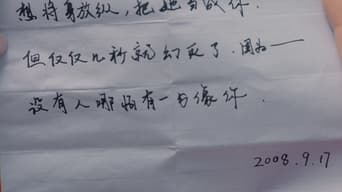 想将身放纵，把她当成你.
但仅仅几秒就幻灭了.因为——
没有人哪怕有一分像你.
2008.9.17